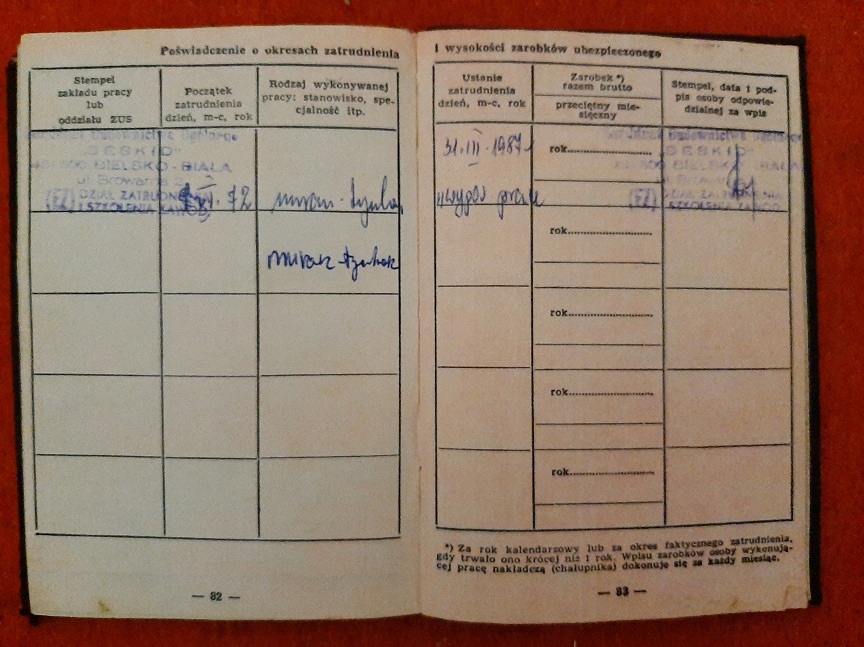 Poświadczenie o okresach zatrudnienia
Stempel
zakładu pracy
lub
oddziału ZUS
Początek
zatrudnienia
dzień, m-c, rok
Rodzaj wykonywanej
pracy: stanowisko, spe-
cjalność itp.
Budownictwa Ogólnego
"BESKID"
BIELSKO-BIAŁA
ul. Browarna 2
DZIAŁ ZATRUDNIENIA
I SZKOLENIA ZAWOD.
72
murarz-tynkarz
murarz-tynkarz
— 82 —
i wysokości zarobków ubezpieczonego
Ustanie
zatrudnienia
dzień, m-c, rok
Zarobek *)
razem brutto
przeciętny mie-
sięczny
Stempel, data i pod-
pis osoby odpowie-
dzialnej za wpis
31.III.1987
rok
Budownictwa
"BESKID"
BIELSKO-BIAŁA
ul. Browarna
DZIAŁ ZATRUDNIENIA
I SZKOLENIA ZAWOD.
rok
rok
rok
rok
*) Za rok kalendarzowy lub za okres faktycznego zatrudnienia,
gdy trwało ono krócej niż 1 rok. Wpisu zarobków osoby wykonują-
cej pracę nakładczą (chałupnika) dokonuje się za każdy miesiąc.
— 83 —